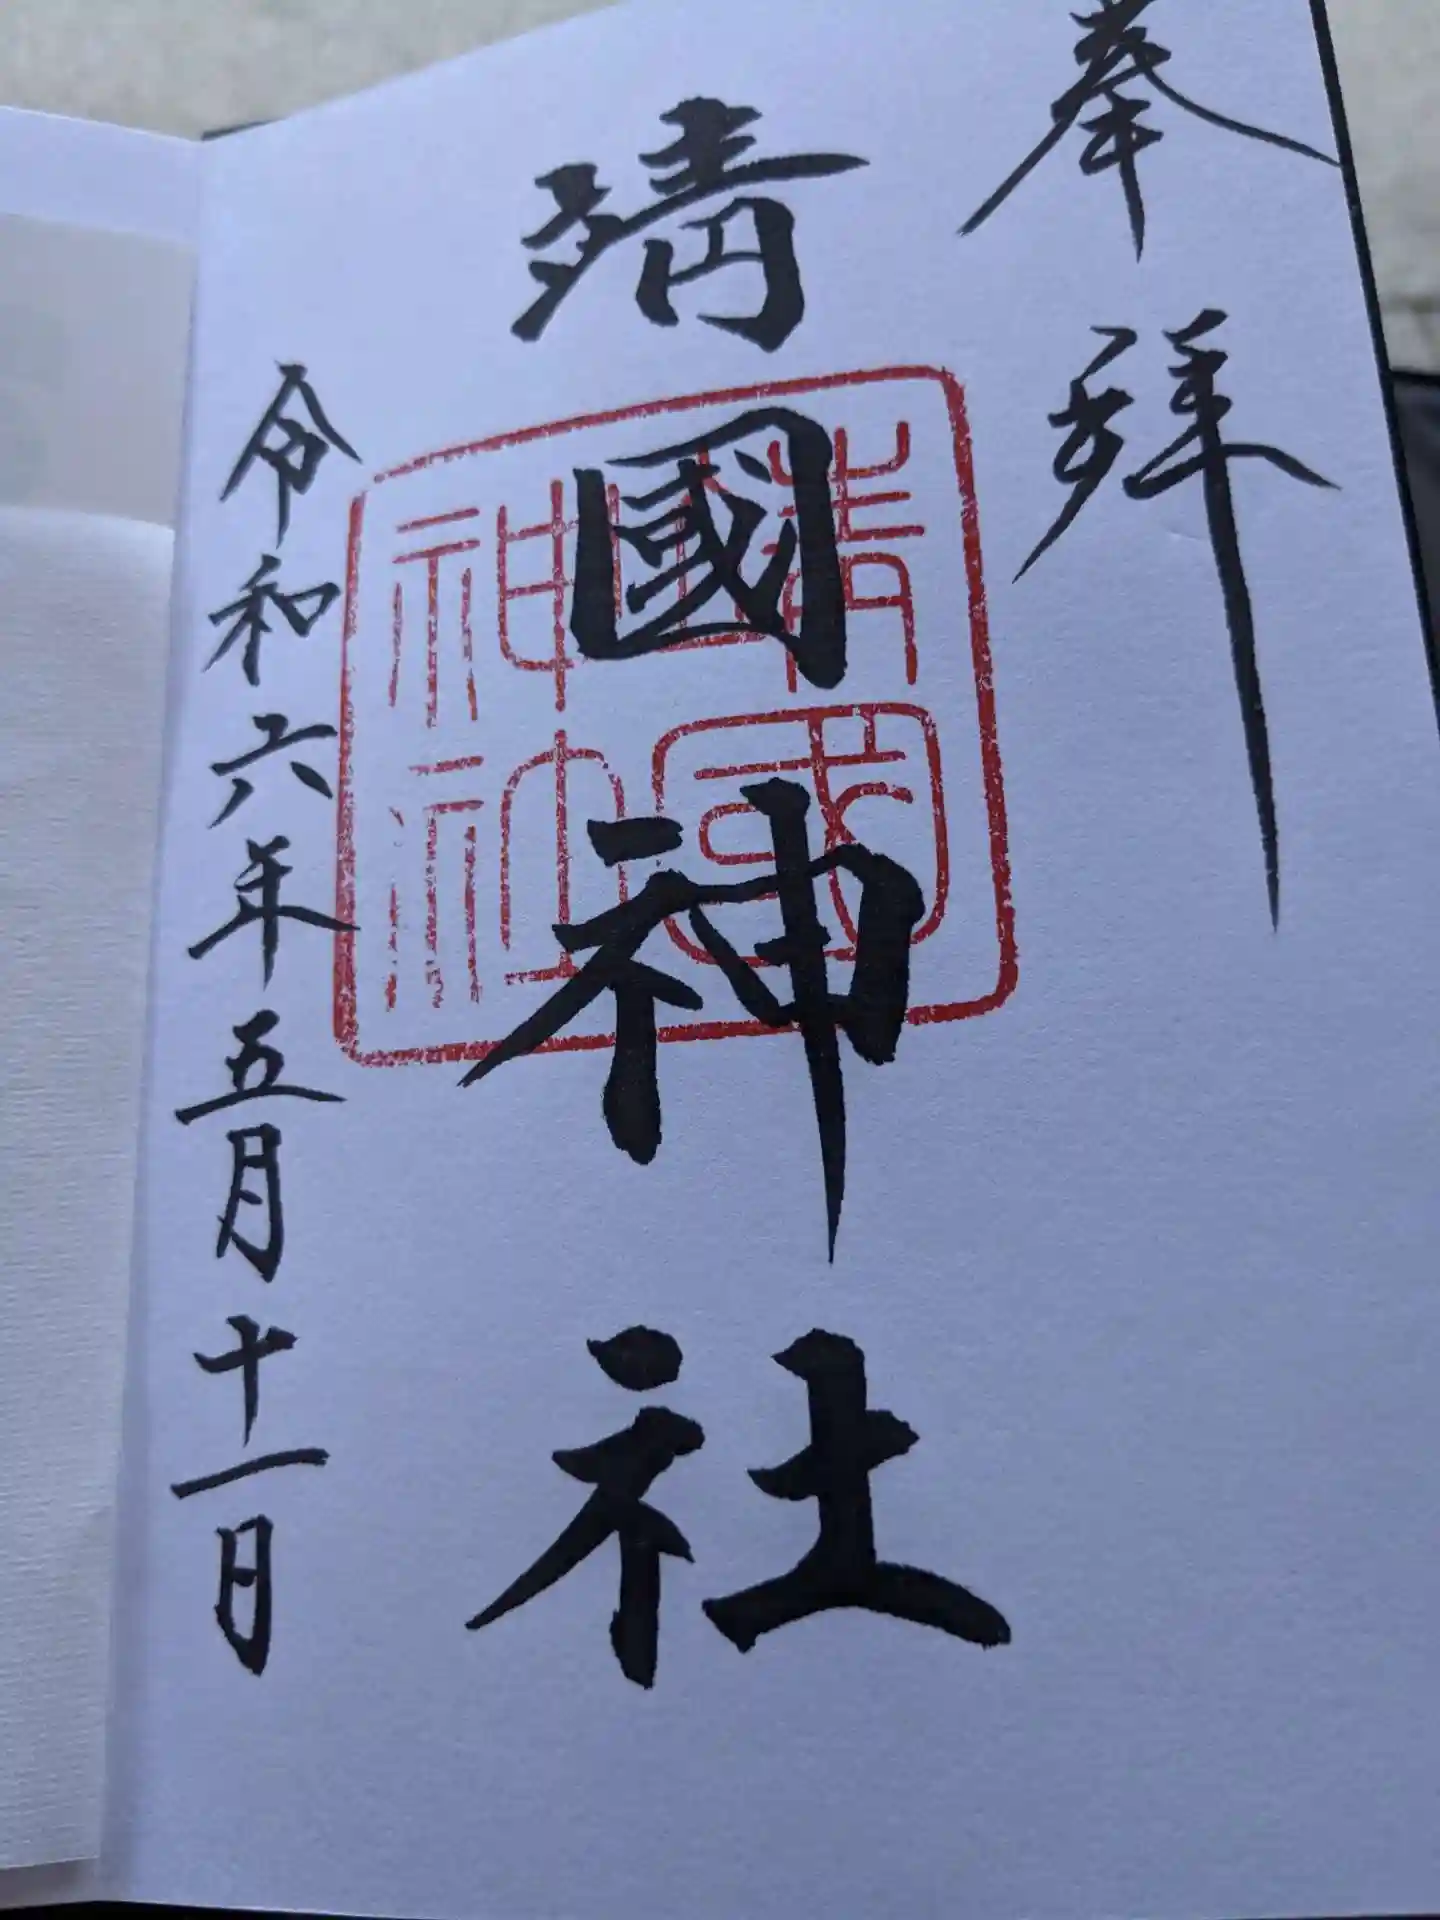 奉拜
靖國神社
靖國
神社
令和六年五月十一日